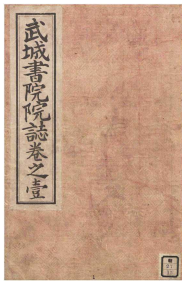 武城書院院誌卷之壹